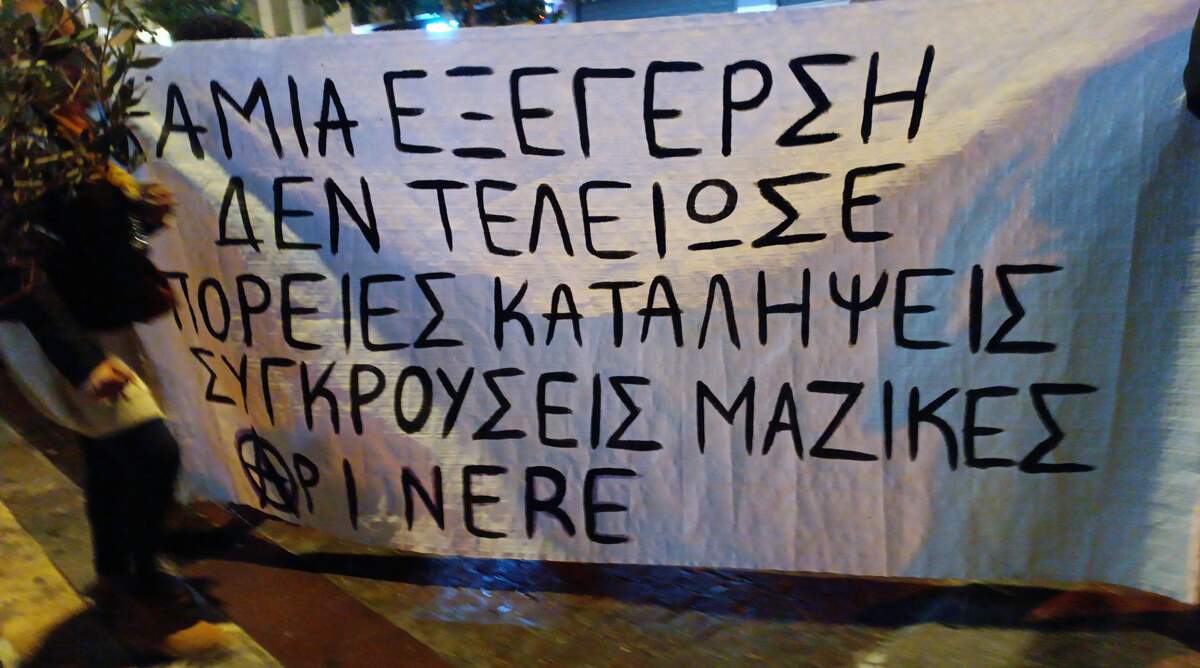 ΑΜΙΑ ΕΞΕΓΕΡΣΗ
ΔΕΝ ΤΕΛΕΙΩΣΕ
ΠΟΡΕΙΕΣ ΚΑΤΑΛΗΨΕΙΣ
ΣΥΓΚΡΟΥΣΕΙΣ ΜΑΖΙΚΕΣ
ⒶΡΙ ΝΕRΕ